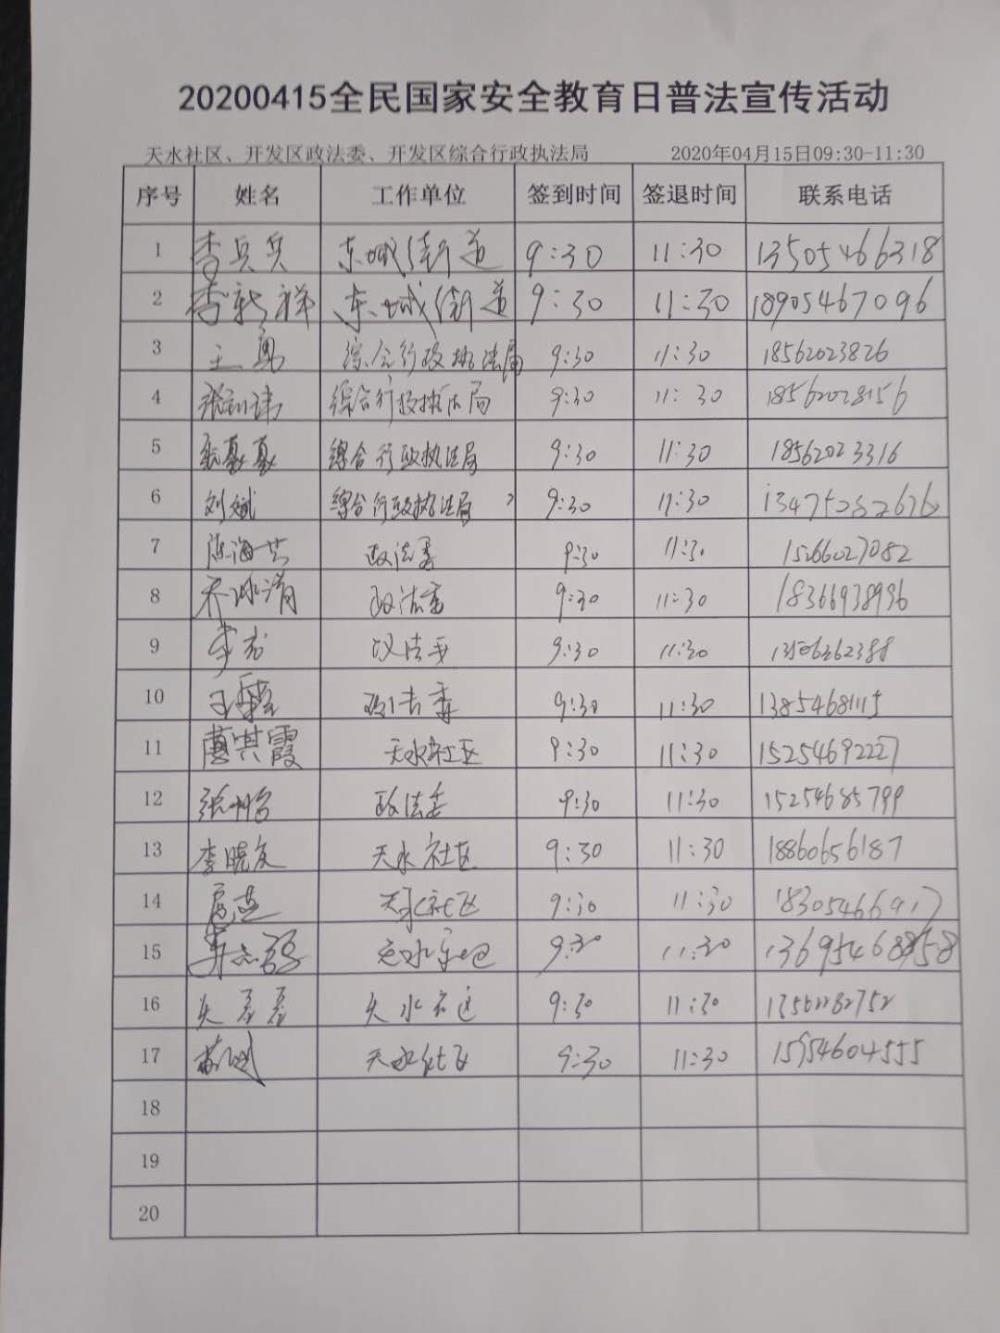 20200415全民国家安全教育日普法宣传活动
天水社区、开发区政法委、开发区综合行政执法局 2020年04月15日09:30-11:30
序号 姓名 工作单位 签到时间 签退时间 联系电话
1 李兵兵 东城街道 9:30 11:30 13505466318
2 李新祥 东城街道 9:30 11:30 18905467096
3 王勇 综合行政执法局 9:30 11:30 18562023826
4 综合行政执法局 9:30 11:30 18562028156
5 综合行政执法局 9:30 11:30 18562023316
6 刘斌 综合行政执法局 9:30 11:30
7 政法委 9:30 11:30 15266027082
8 政法委 9:30 11:30 18366938996
9 政法委 9:30 11:30
10 政法委 9:30 11:30 13854681115
11 天水社区 9:30 11:30 15254692227
12 政法委 9:30 11:30 15254685799
13 李晓友 天水社区 9:30 11:30 18860656187
14 天水社区 9:30 11:30 18305466917
15 天水社区 9:30 11:30
16 天水社区 9:30 11:30
17 天水社区 9:30 11:30 15954604555
18
19
20